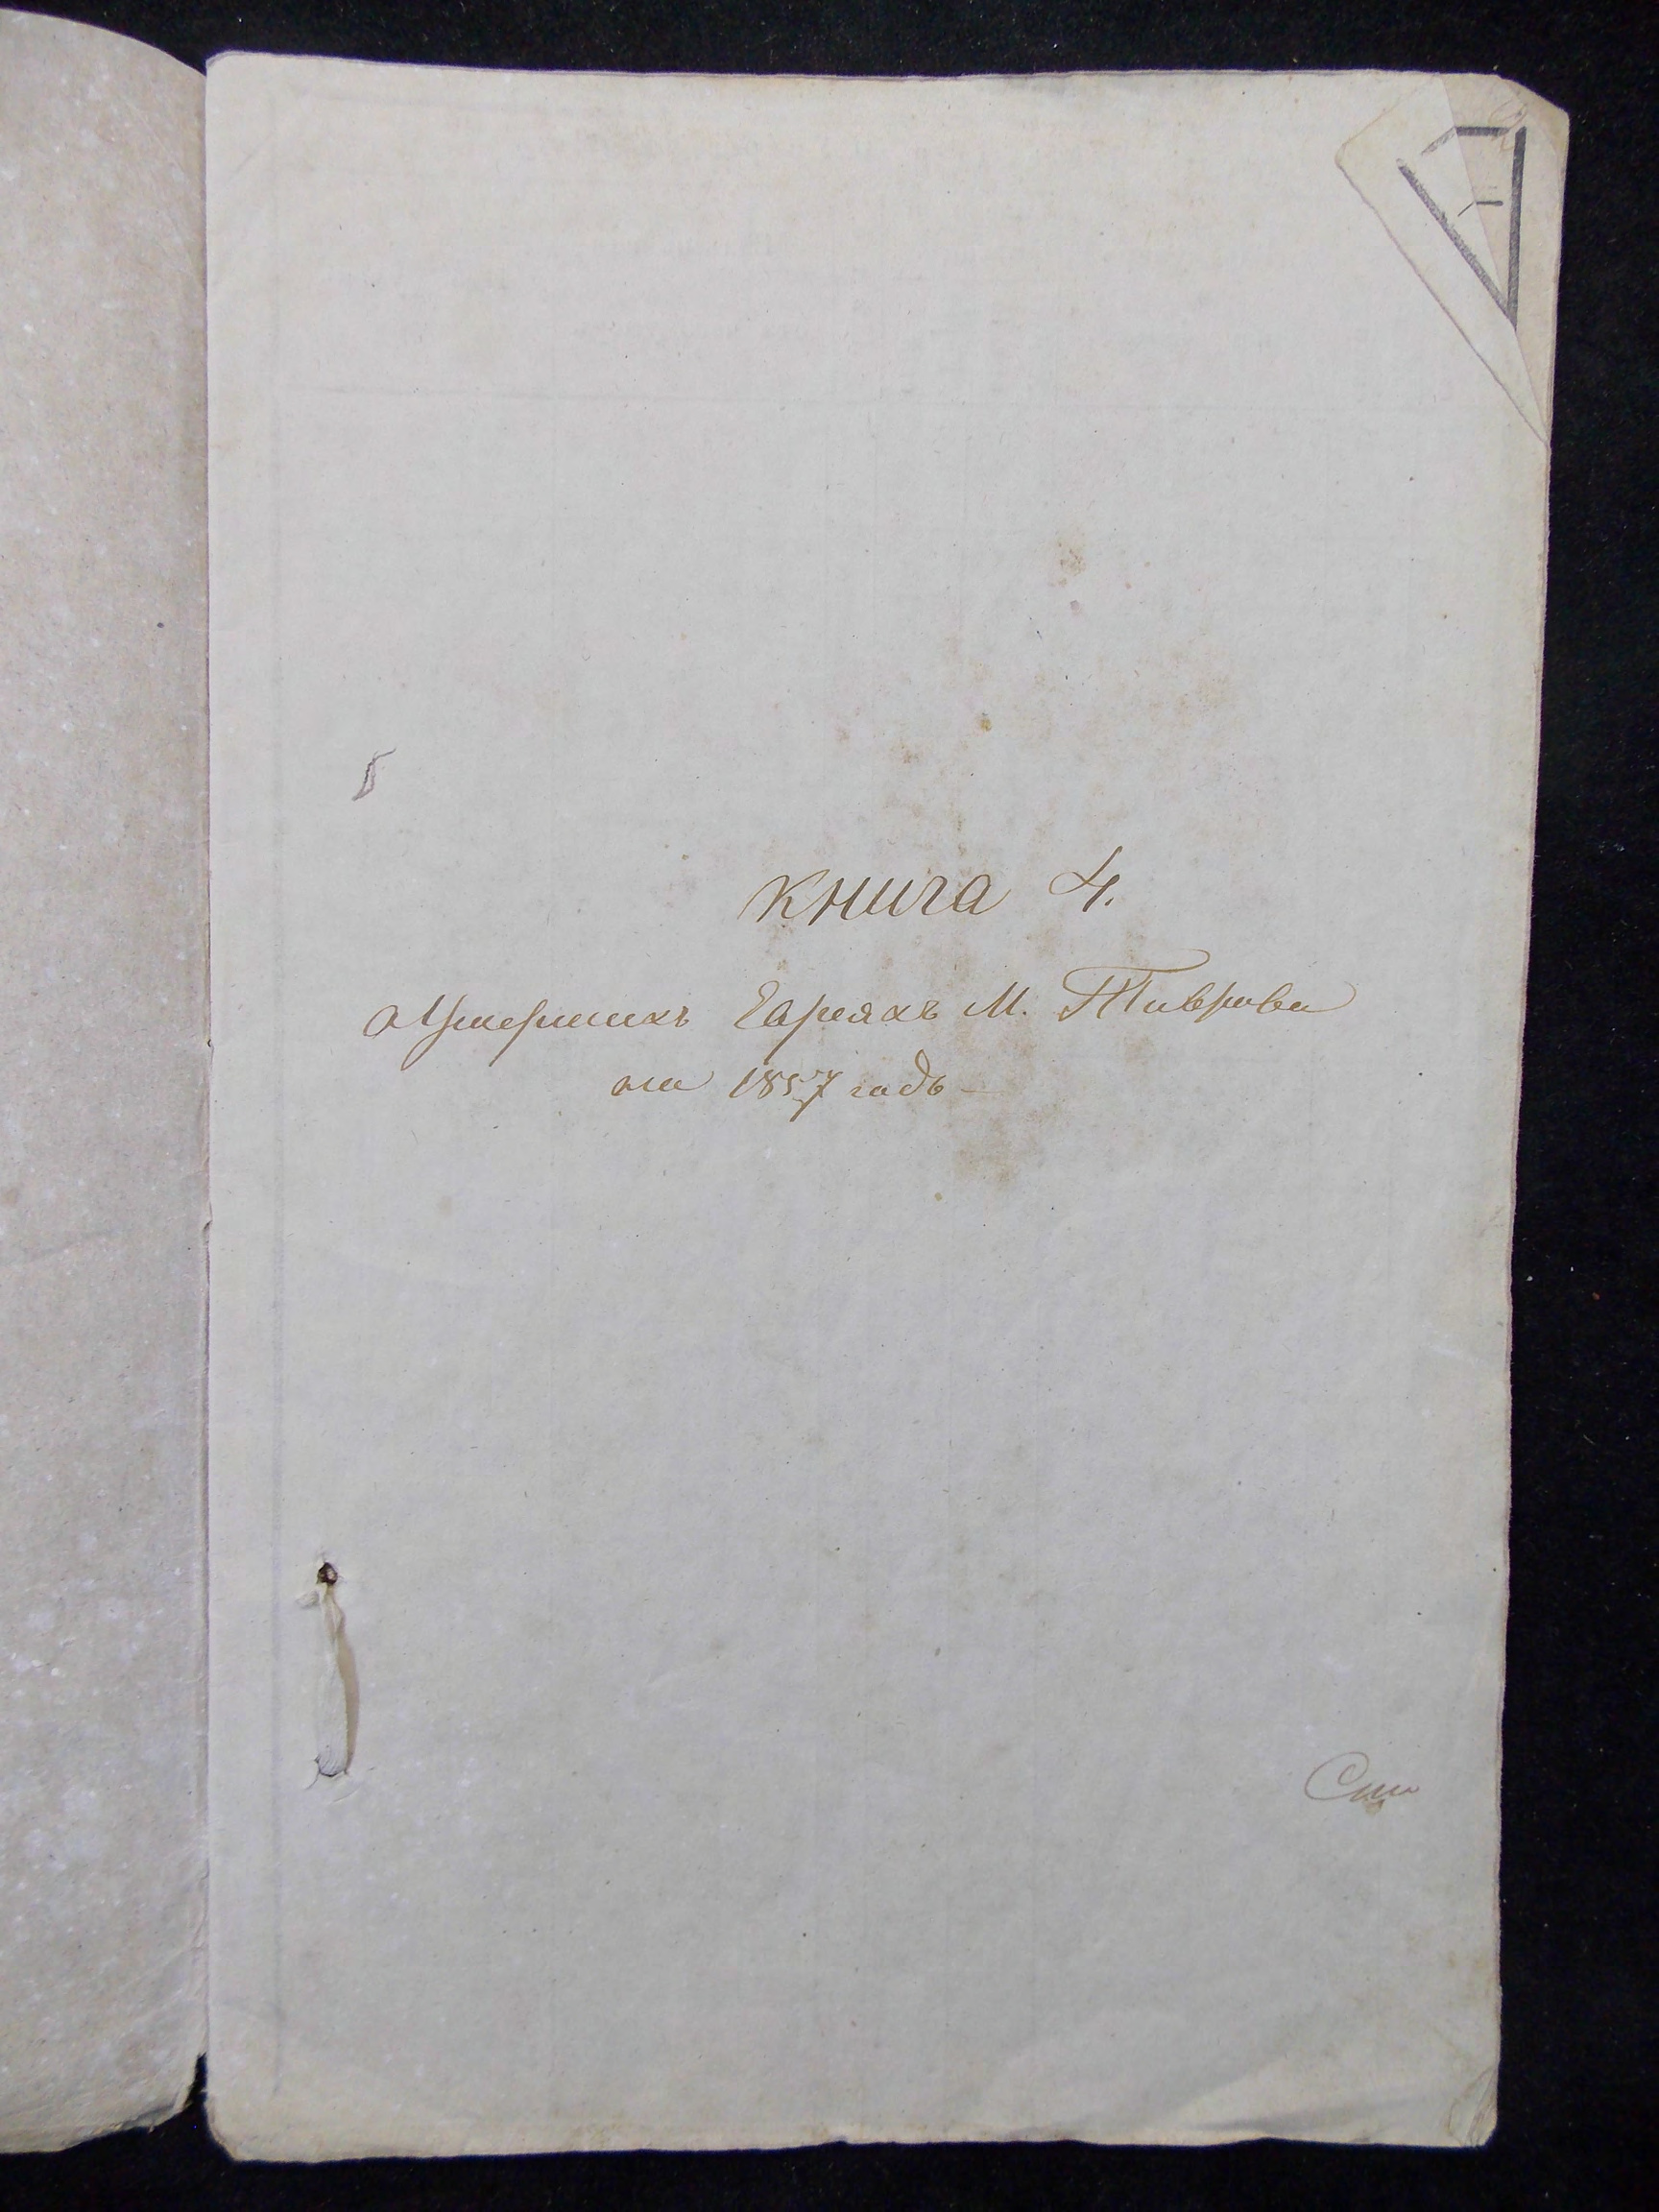 Книга 4.
о Умершихъ Евреяхъ М. Тиврова
на 1857 годъ